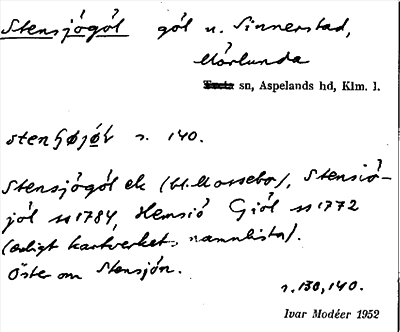 Stensjögöl göl n. Sinnerstad,
Mörlunda
sn, Aspelands hd, Klm. l.
s. 140.
Stensjögöl ek (bl. Mossebo), Stensiö-
jöl 1784, Hemsiö Giöl 1772
(enligt kartverkets namnlista).
Öster om Stensjön.
s. 130, 140.
Ivar Modéer 1952